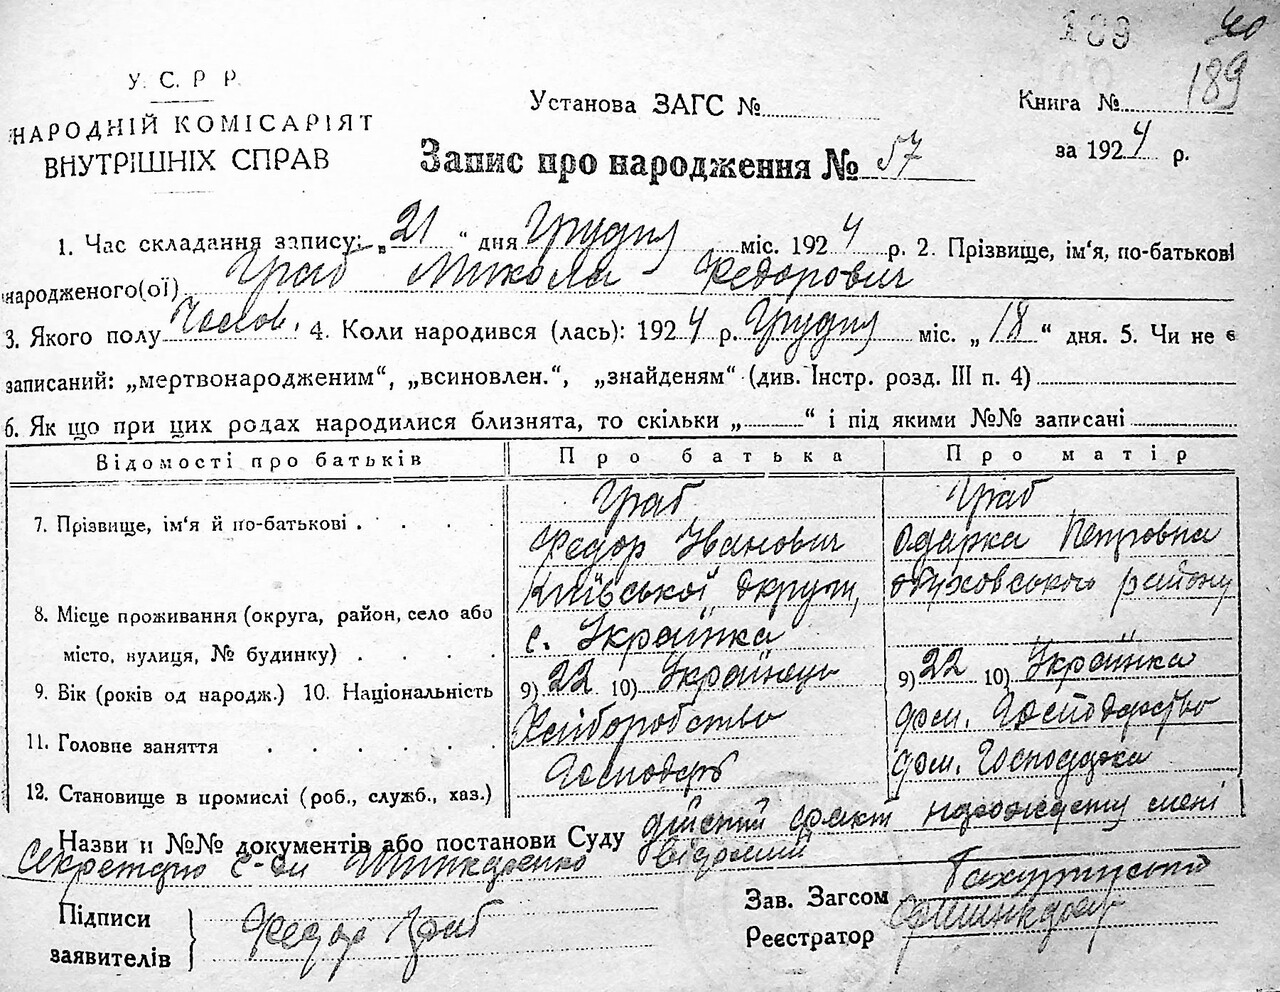 189 40
У. С. Р. Р.
НАРОДНІЙ КОМІСАРІЯТ
ВНУТРІШНІХ СПРАВ
Установа ЗАГС №
Книга № 189
Запис про народження № 57
за 1924 р.
1. Час складання запису: „21“ дня Грудня міс. 1924 р. 2. Прізвище, ім'я, по-батькові
народженого(ої) Граб Микола Федорович
3. Якого полу Чолов. 4. Коли народився (лась): 1924 р. Грудня міс. „18“ дня. 5. Чи не є
записаний: „мертвонародженим“, „всиновлен.“, „знайденям“ (див. Інстр. розд. III п. 4)
6. Як що при цих родах народилися близнята, то скільки „ “ і під якими №№ записані
Відомості про батьків Про батька Про матір
7. Прізвище, ім'я й по-батькові . . . . Граб Граб
Федор Іванович Одарка Петровна
8. Місце проживання (округа, район, село або Київської округи, Обуховського району
місто, вулиця, № будинку) . . . . с. Українка
9. Вік (років од народж.) 10. Національність 9) 22 10) Українець 9) 22 10) Українка
11. Головне заняття . . . . . . Хліборобство дом. Господарство
12. Становище в промислі (роб., служб., хаз.) Господарь дом. Господарка
Назви и №№ документів або постанови Суду дійсний факт мені
Секретарю відомий
Підписи
заявителів
Федор Граб
Зав. Загсом
Реєстратор